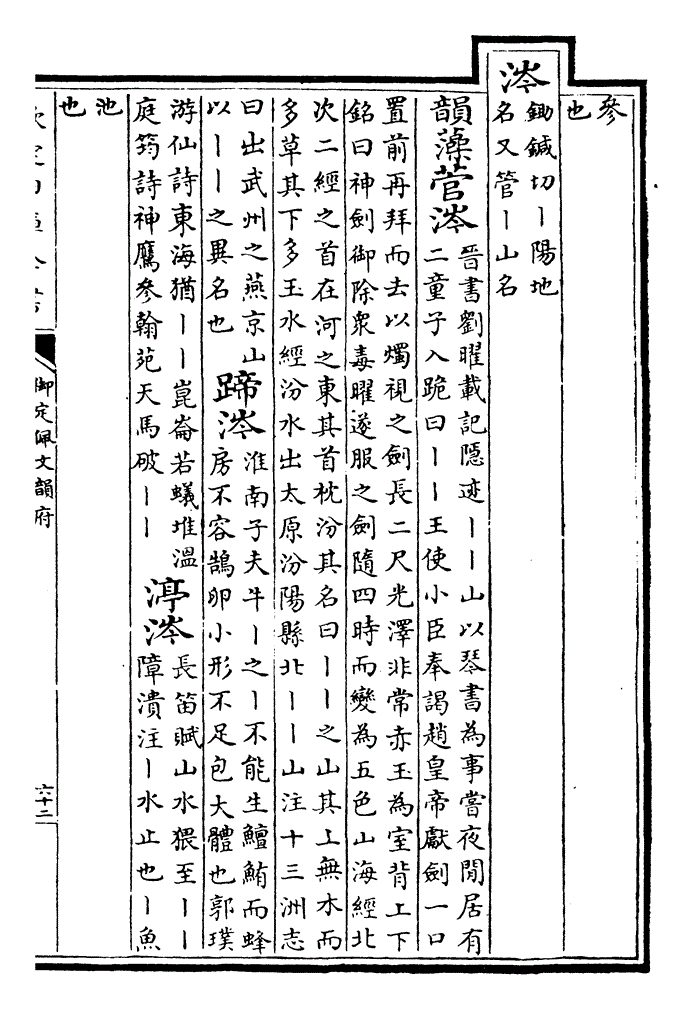 參
也
涔
鋤鍼切丨陽地
名又管丨山名
韻藻菅涔
晉書劉曜載記隱迹丨丨山以琴書為事嘗夜閒居有
二童子入跪曰丨丨王使小臣奉謁趙皇帝獻劍一口
置前再拜而去以燭視之劍長二尺光澤非常赤玉為室背上下
銘曰神劍御除衆毒曜遂服之劍隨四時而變為五色山海經北
次二經之首在河之東其首枕汾其名曰丨丨之山其上無木而
多草其下多玉水經汾水出太原汾陽縣北丨丨山注十三洲志
曰出武州之燕京山
以丨丨之異名也
蹄涔
淮南子夫牛丨之丨不能生鱣鮪而蜂
房不容鵠卵小形不足包大體也郭璞
游仙詩東海猶丨丨崑崙若蟻堆溫
庭筠詩神鷹參翰苑天馬破丨丨
渟涔
長笛賦山水猥至丨丨
障潰注丨水止也丨魚
池
也
欽定四庫全書
御定佩文韻府
六十二